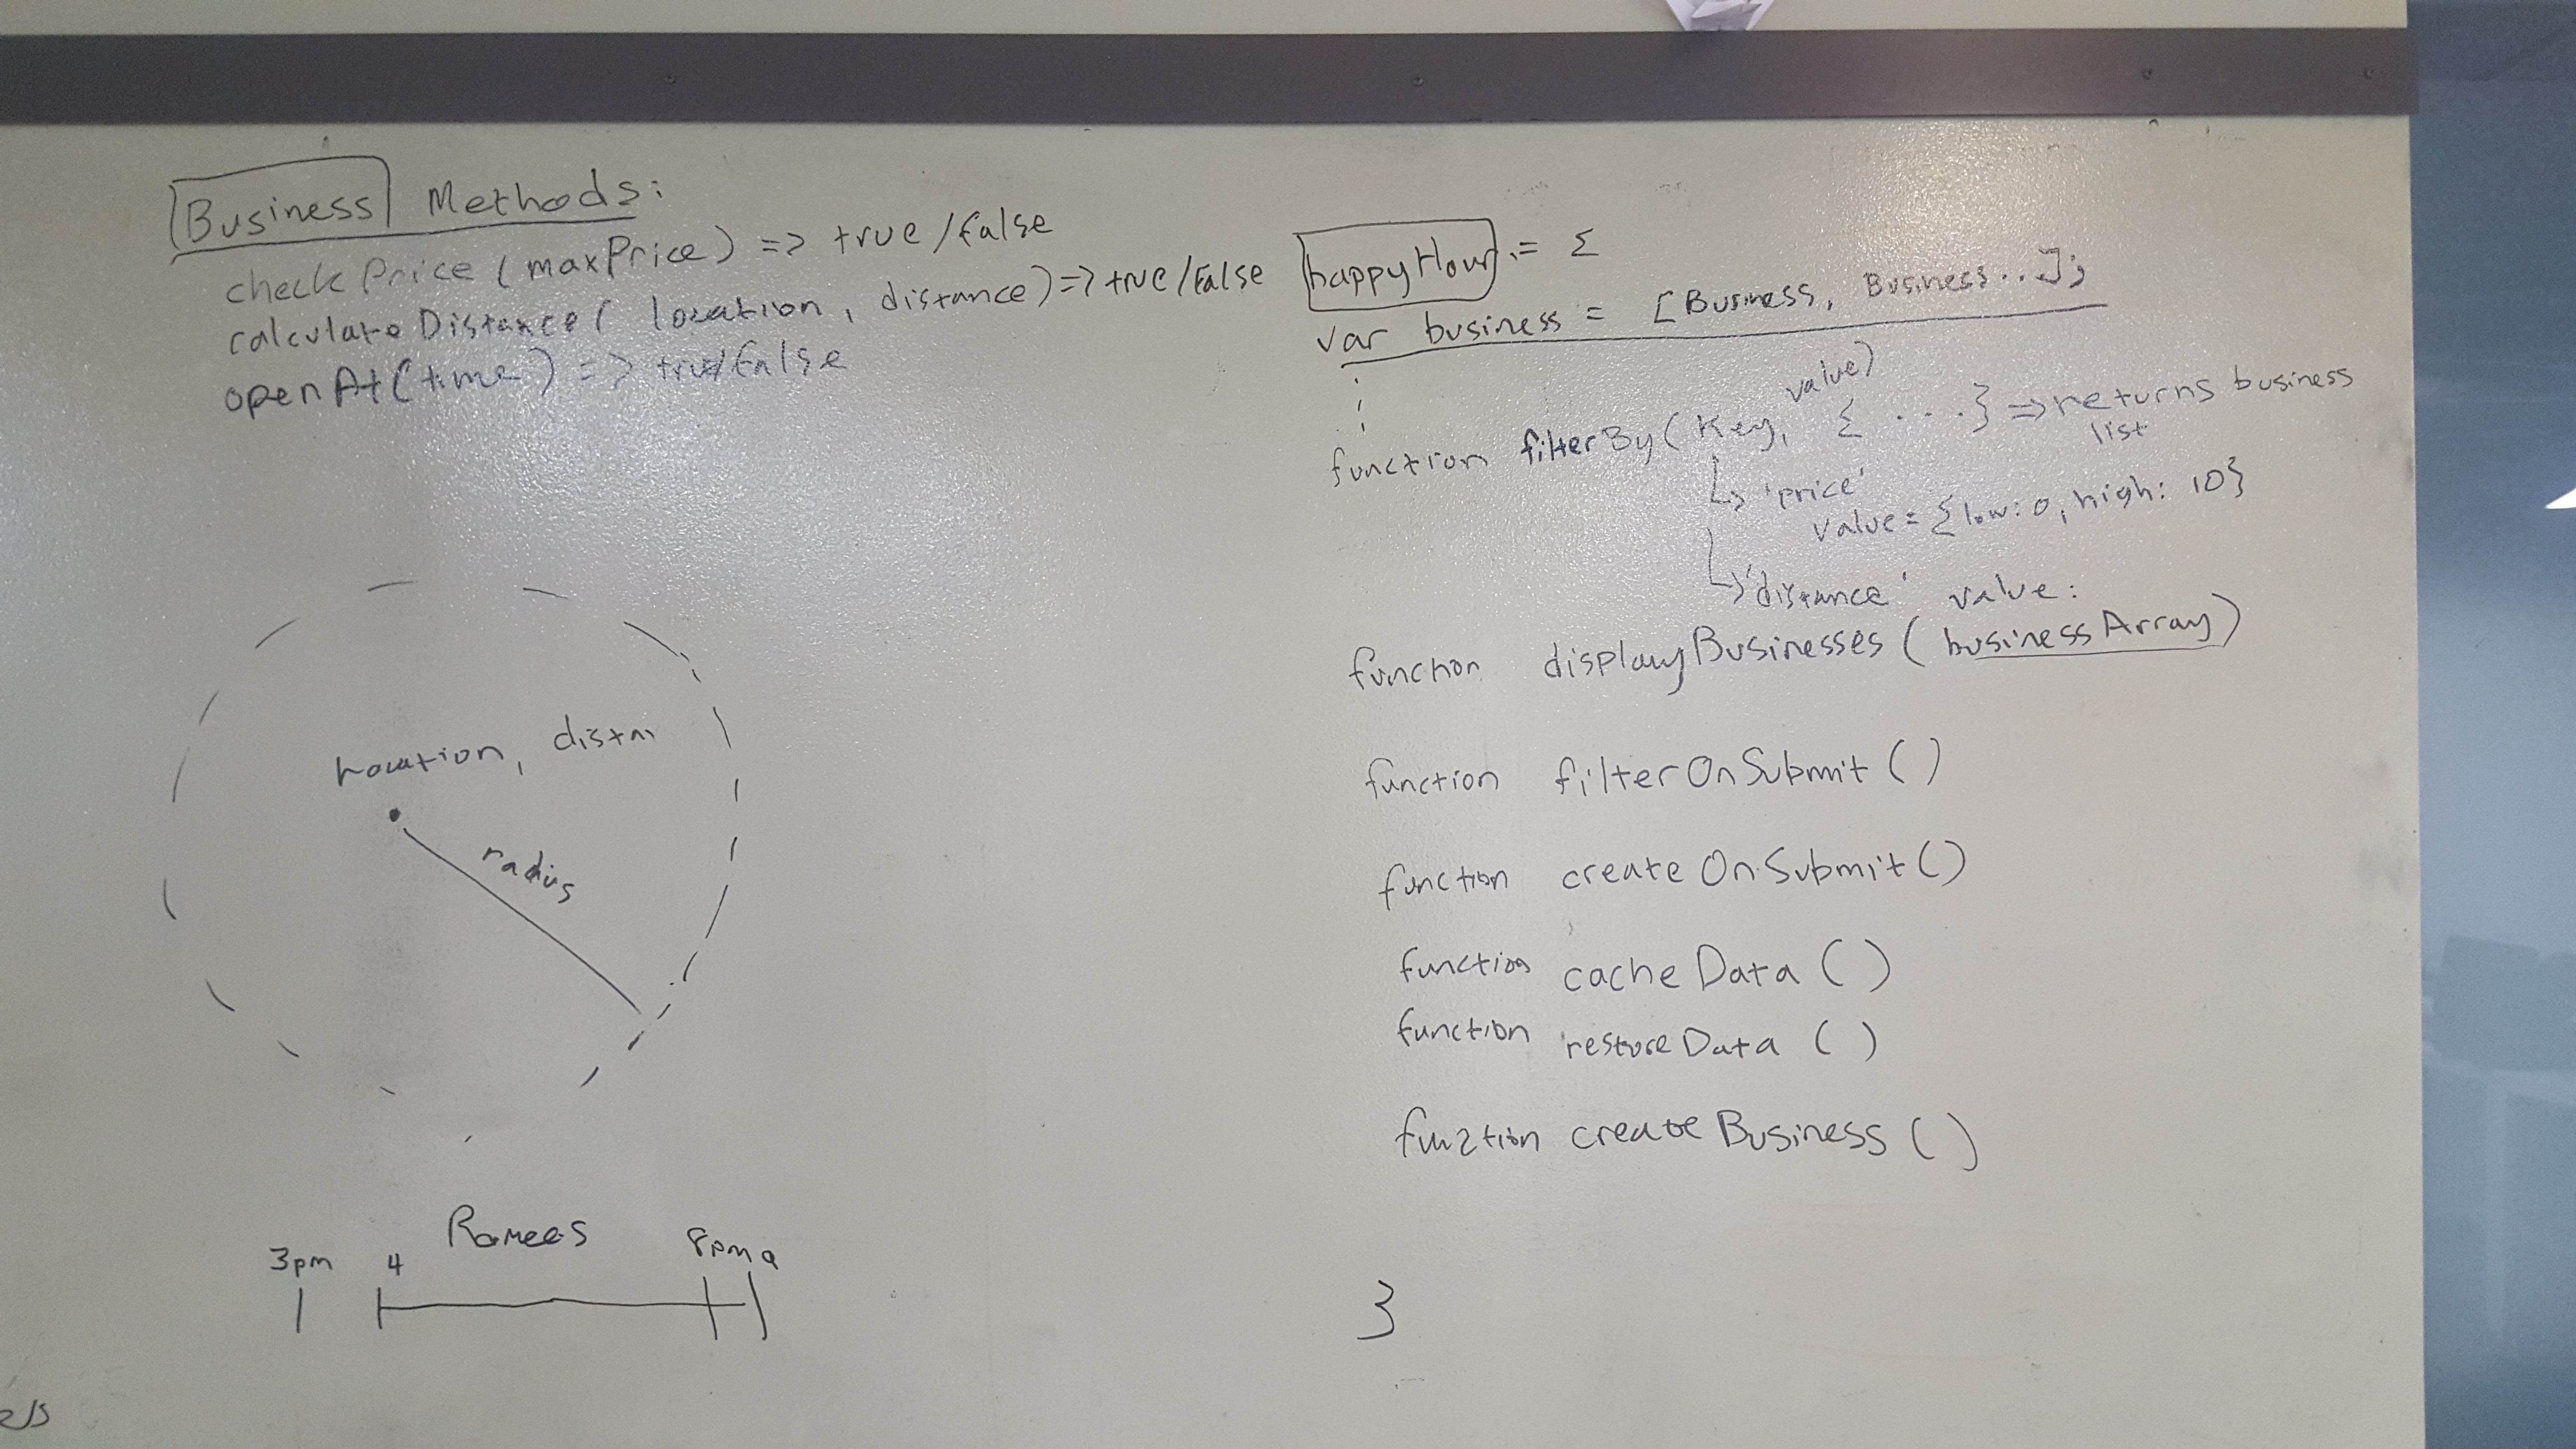 Business Methods:
checkPrice (maxPrice) => true/false
calculateDistance( location, distance) => true/false
openAt(time) => true/false
location, distn
radius
Ramees
3pm 4 8pm 9
happyHour = {
var business = [Business, Business...];
function filterBy(key, value) { ...} => returns business list
↳ 'price'
value = {low: 0, high: 10}
↳ 'distance' value:
function displayBusinesses (businessArray)
function filterOnSubmit ()
function createOnSubmit ()
function cacheData ()
function restoreData ()
function createBusiness ()
}